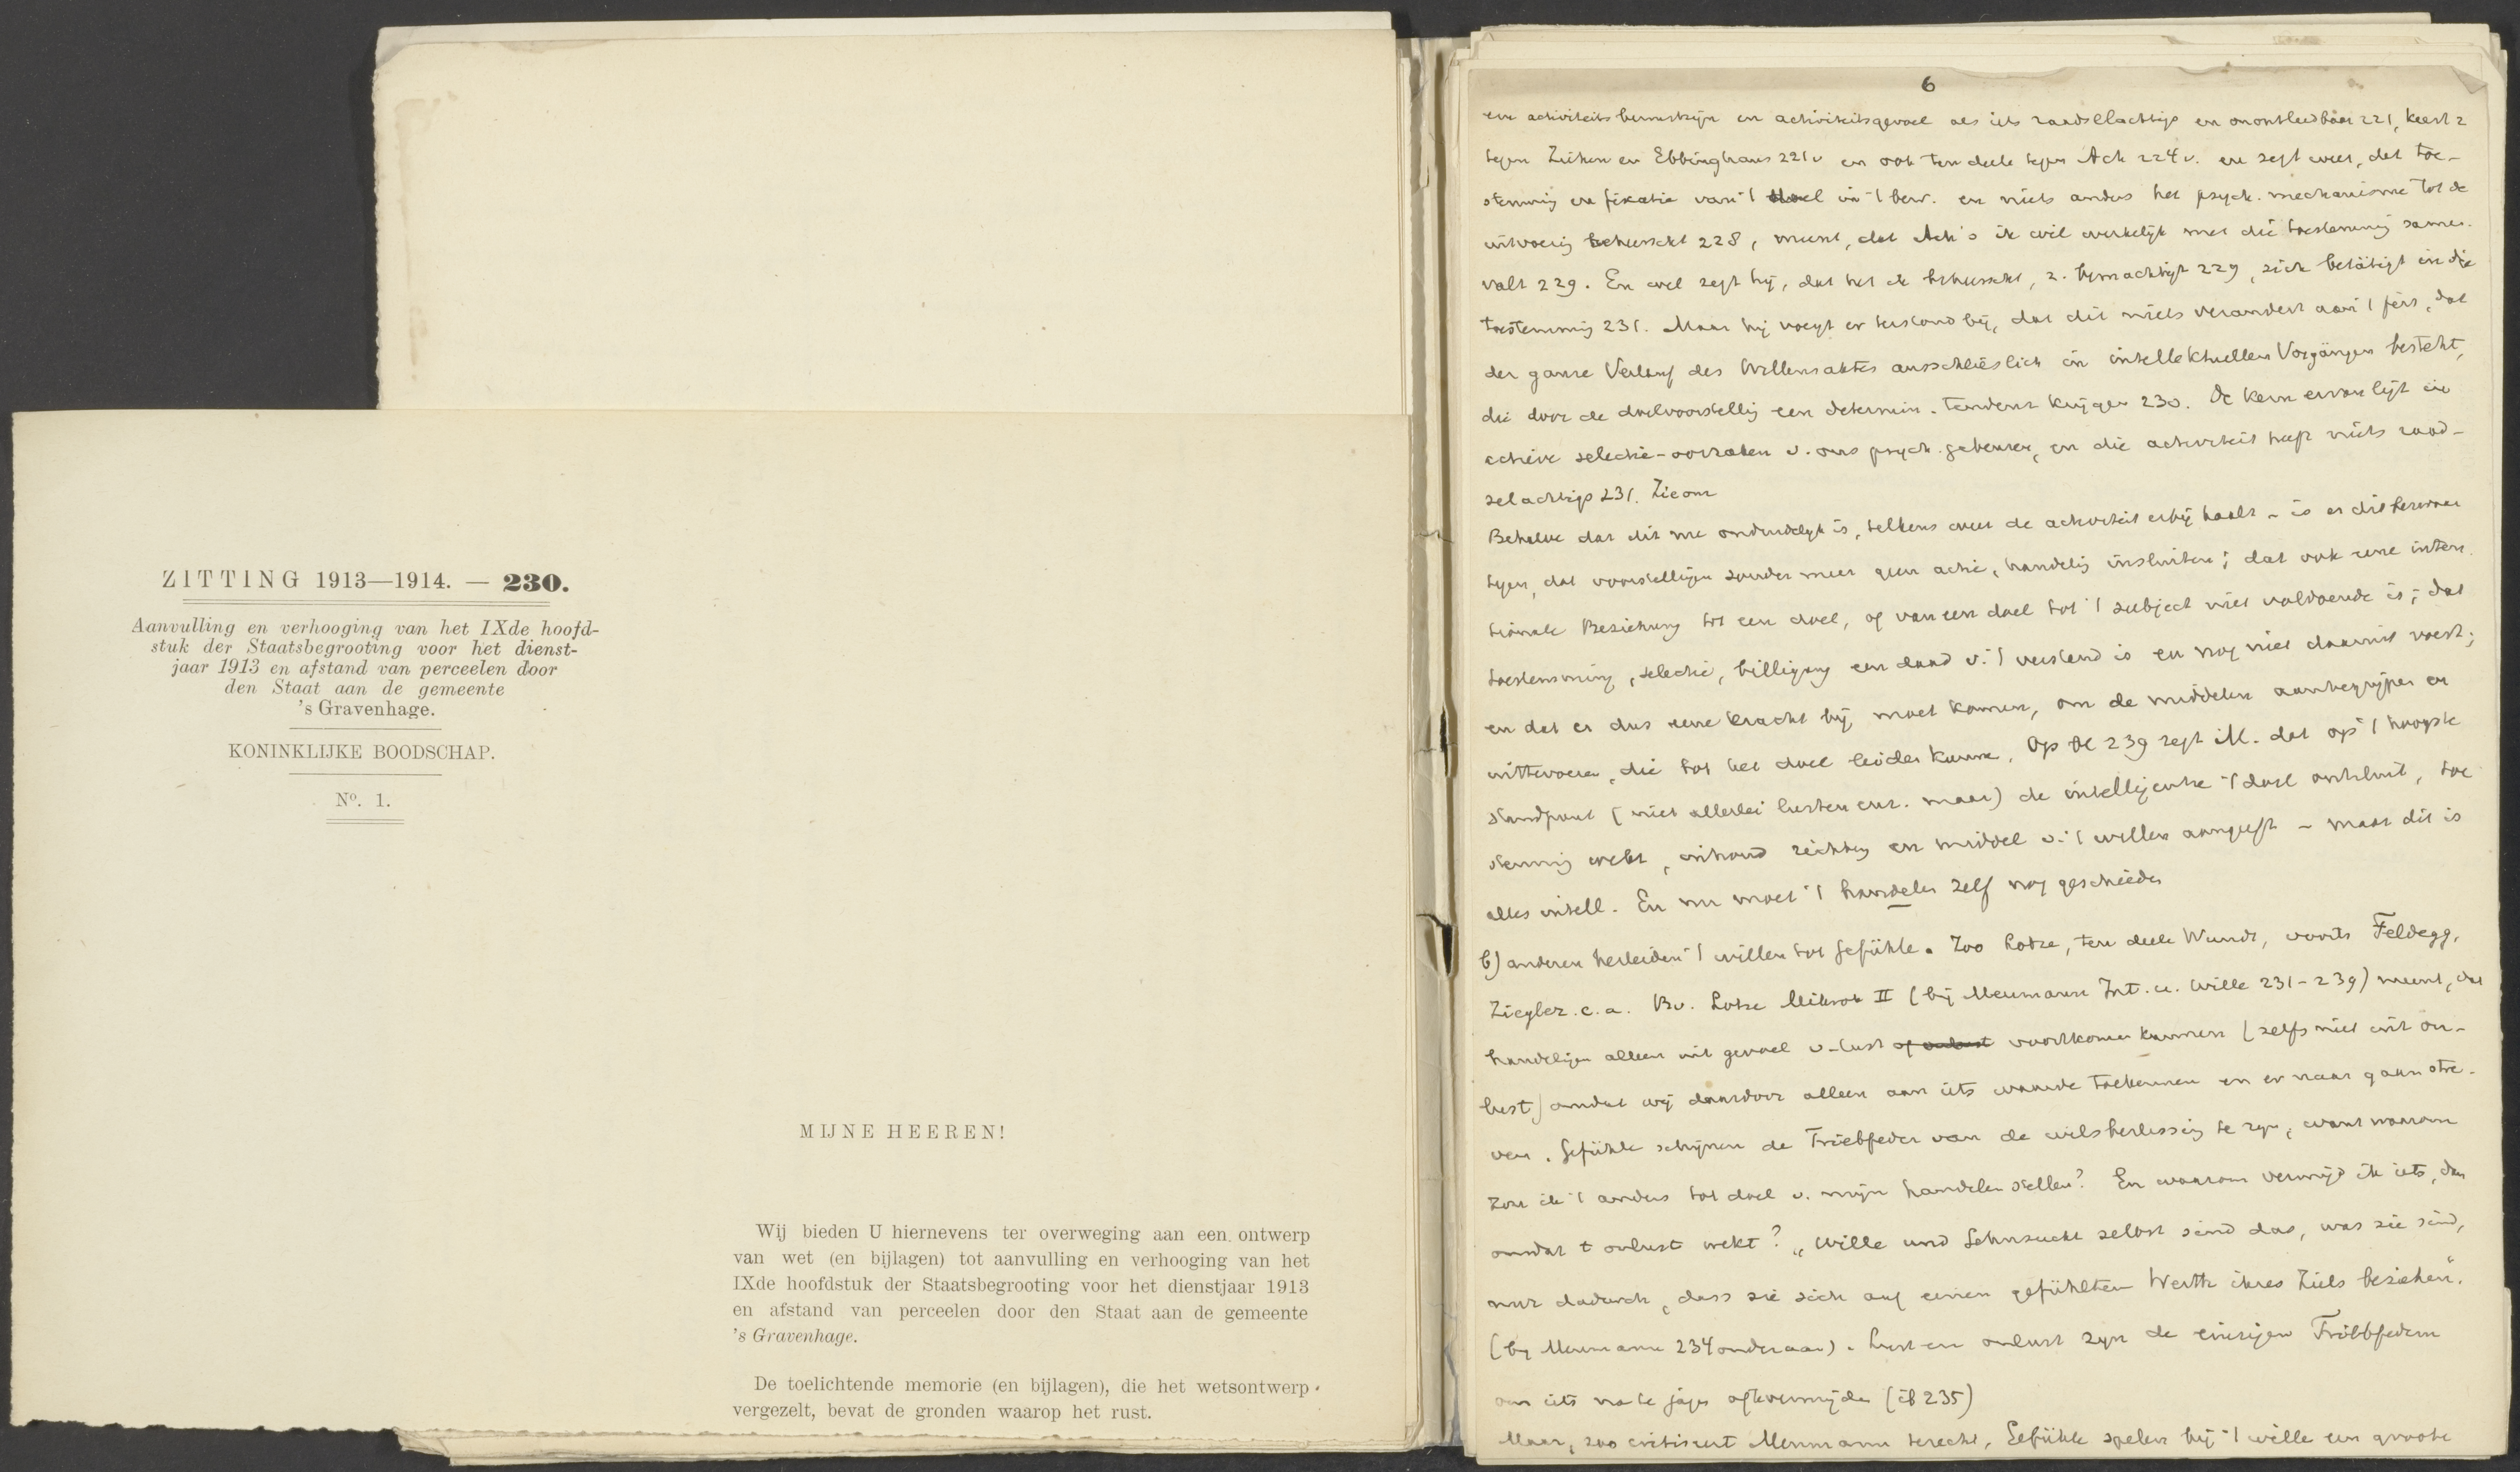 ZITTING 1913—1914. — 230.
Aanvulling en verhooging van het IXde hoofd-
stuk der Staatsbegrooting voor het dienst-
jaar 1913 en afstand van perceelen door
den Staat aan de gemeente
's Gravenhage.
KONINKLIJKE BOODSCHAP.
No. 1.
MIJNE HEEREN!
Wij bieden U hiernevens ter overweging aan een ontwerp
van wet (en bijlagen) tot aanvulling en verhooging van het
IXde hoofdstuk der Staatsbegrooting voor het dienstjaar 1913
en afstand van perceelen door den Staat aan de gemeente
's Gravenhage.
De toelichtende memorie (en bijlagen), die het wetsontwerp
vergezelt, bevat de gronden waarop het rust.
6
en activiteitsbewustzijn en activiteitsgevoel als iets raadselachtigs en onontleedbaar 221, keert z
tegen Ziehen en Ebbinghaus 221v en ook ten deele tegen Ach 224v. en zegt weer, dat toe-
stemming en fixatie van 't doel in 't bew. en niets anders het psych. mechanisme tot de
uitvoering beheerscht 228, meent, dat Ach's ik wil werkelijk met die toestemming samen-
valt 229. En wel zegt hij, dat het ik beheerscht, z. bemachtigt 229, zich betätigt in die
toestemming 231. Maar hij voegt er terstond bij, dat dit niets verandert aan 't feit, dat
der ganze Verlauf des Willensaktes ausschlieslich in intellektuellen Vorgängen besteht,
die door de doelvoorstellig een determin. tendenz krijgen 230. De kern ervan ligt in
actieve selectie-oorzaken v. ons psych. gebeuren, en die activiteit heeft niets raad-
selachtigs 231.
Behalve dat dit me onduidelijk is, telkens weer de activiteit erbij haalt – is er dit
tegen, dat voorstellingen zonder meer geen actie, handelig insluiten; dat ook eene inten-
tionale Beziehung tot een doel, of van een doel tot 't subject niet voldoende is; dat
toestemming, selectie, billigung een daad v. 't verstand is en nog niet daaruit voert;
en dat er dus eene kracht bij moet komen, om de middelen aantegrijpen en
uittevoeren, die tot het doel leiden kunnen. Op bl 239 zegt M. dat op 't hoogste
standpunt (niet allerlei lusten enz. maar) de intelligentie 't doel onthult, toe
stemming wekt, inhoud richting en middel v. 't willen aangeeft – maar dit is
alles intell. En nu moet 't handelen zelf nog geschieden
b) anderen herleiden 't willen tot Gefühle. Zoo Lotze, ten deele Wundt, voorts Feldegg,
Ziegler e.a. Bv. Lotze Mikrok II (bij Meumann Int. u. Wille 231-239) meent, dat
handelingen alleen uit gevoel v. lust of onlust voortkomen kunnen (zelfs niet uit on-
lust) omdat wij daardoor alleen aan iets waarde toekennen en er naar gaan stre-
ven. Gefühle schijnen de Triebfeder van de wilsbeslissing te zijn, want waarom
zou ik 't anders tot doel v. mijn handelen stellen? En waarom vermijd ik iets, dan
omdat 't onlust wekt? „Wille und Sehnsucht selbst sind das, was sie sind,
nur dadurch, dass sie sich auf einen gefühlten Werth ihres Ziels beziehen“.
(bij Meumann 234 onderaan). Lust en onlust zijn de einigen Triebfedern
om iets na te jagen of te vermijden (ib 235)
Maar, zoo critiseert Meumann terecht, Gefühle spelen bij 't wille een groote